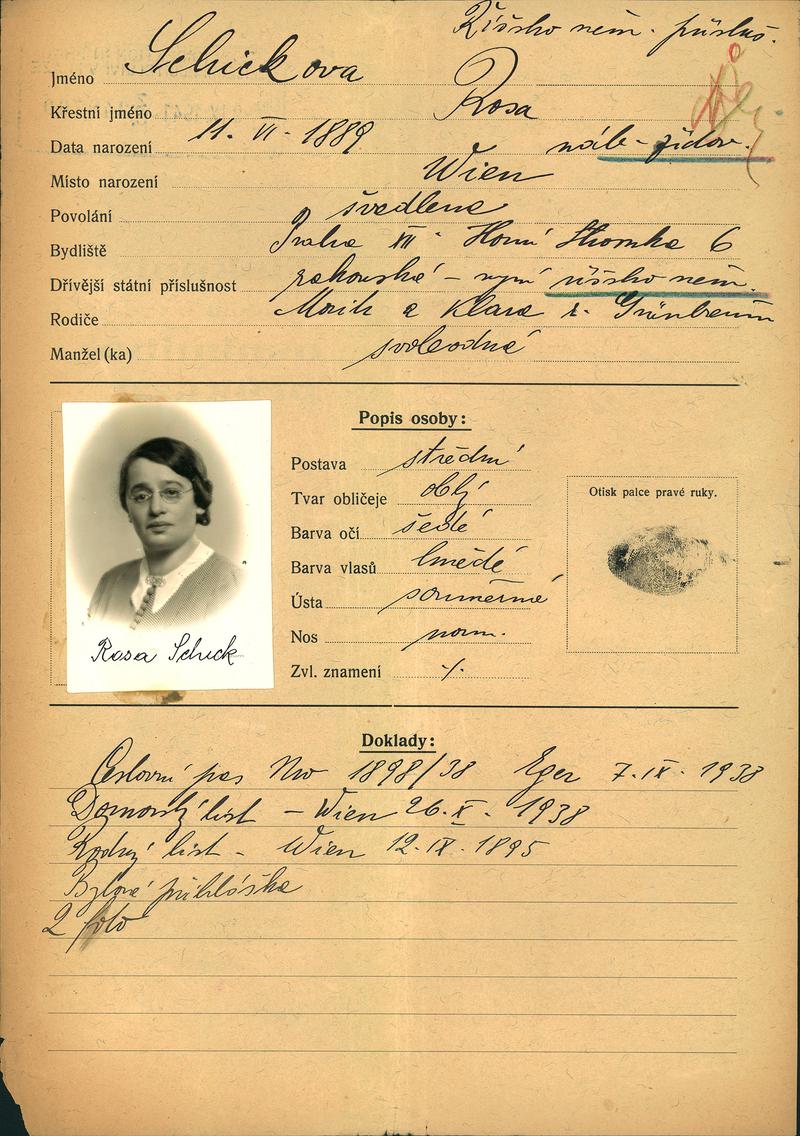 Říšsko něm. přísluš.
Jméno Schickova
Křestní jméno Rosa
Data narození 11. VI. 1889 náb. židov.
Místo narození Wien
Povolání švadlena
Bydliště Praha XII. Horní Stromka 6
Dřívější státní příslušnost rakouská – nyní říšsko něm.
Rodiče Moritz a Klara r. Grünbaum
Manžel (ka) svobodná
Popis osoby:
Postava střední
Tvar obličeje oblý
Barva očí šedé
Barva vlasů hnědé
Ústa souměrné
Nos norm.
Zvl. znamení ·/·
Otisk palce pravé ruky.
Rosa Schick
Doklady:
Cestovní pas 1898/38 Eger 7. IX. 1938
Domovský list – Wien 26. X. 1938
Rodný list – Wien 12. IX. 1895
Bytová přihláška
2 foto